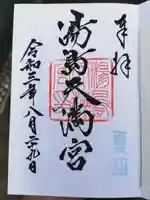 奉拝
湯島天満宮
令和三年八月二九日